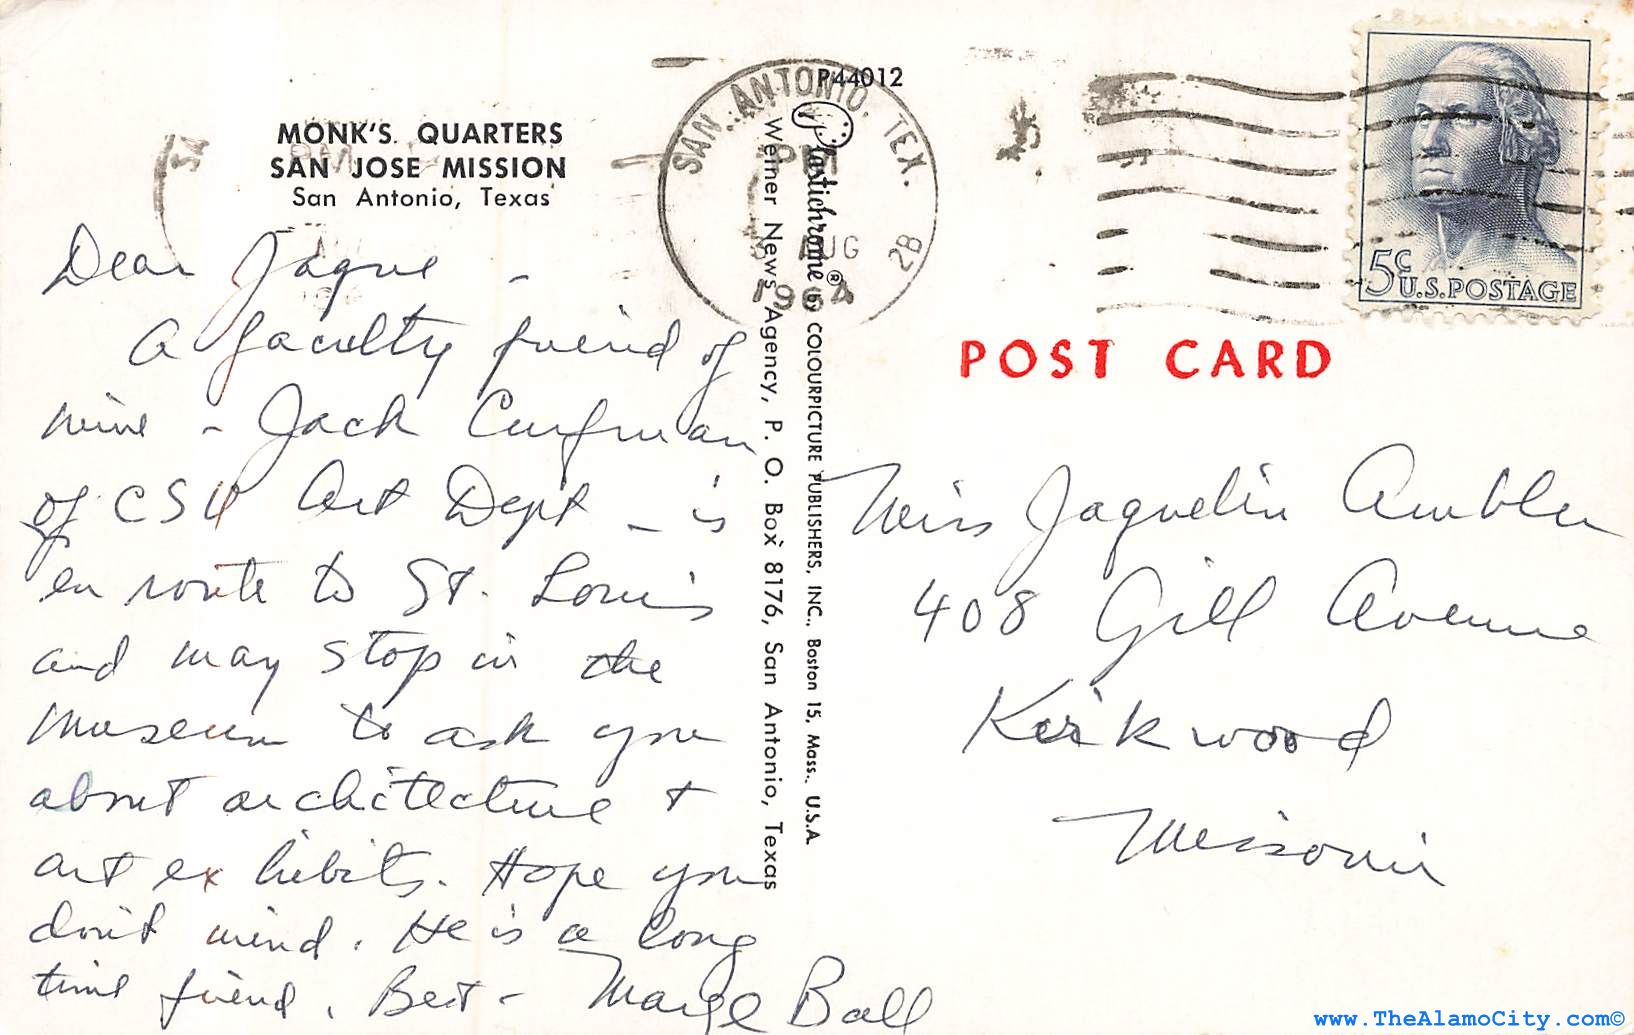 MONK'S QUARTERS
SAN JOSE MISSION
San Antonio, Texas
Dear Jaque -
A faculty friend of
mine - Jack Curfman
of CSU Art Dept - is
en route to St. Louis
and may stop in the
Museum to ask you
about architecture +
art exhibits. Hope you
don't mind. He is a long
time friend. Best - Marge Ball
P44012
Plastichrome ® by COLOURPICTURE PUBLISHERS, INC., Boston 15, Mass., U.S.A.
Werner News Agency, P. O. Box 8176, San Antonio, Texas
SAN ANTONIO, TEX.
AUG
28
1964
5c
U.S. POSTAGE
POST CARD
Miss Jaquelin Ambler
408 Gill Avenue
Kirkwood
Missouri
www.TheAlamoCity.com©